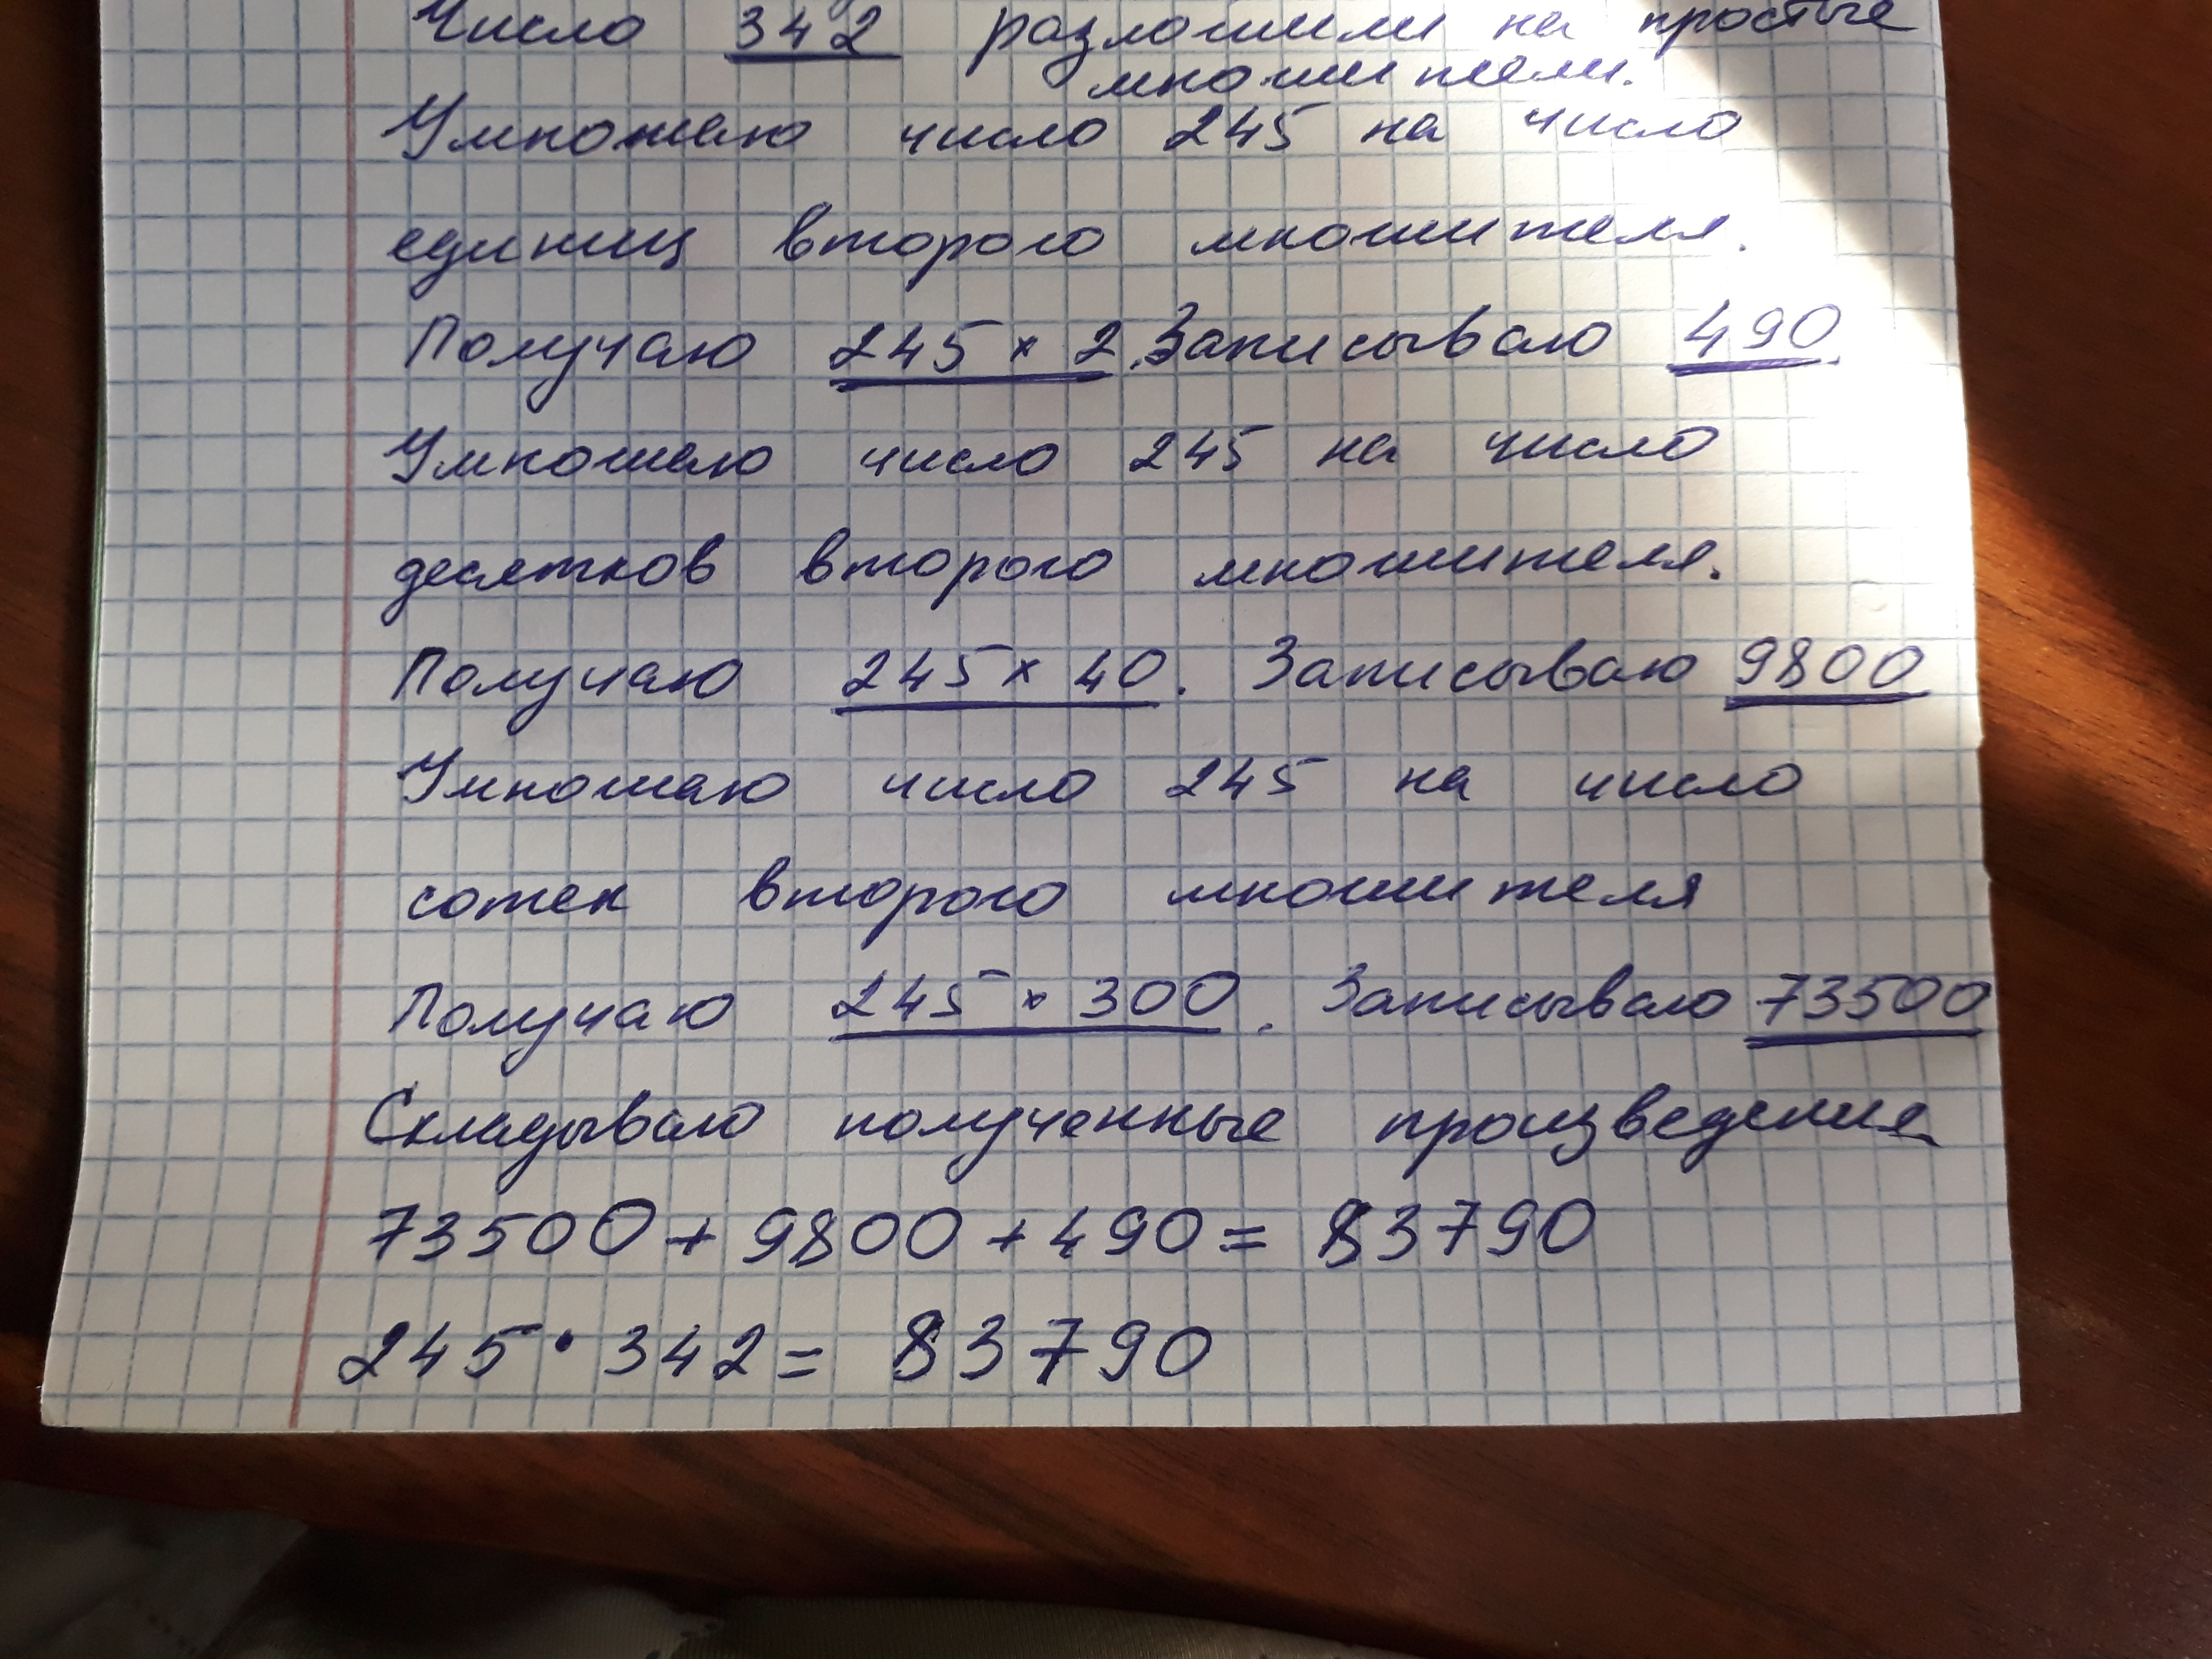 Число 342 разложили на простые
множители.
Умножаю число 245 на число
единиц второго множителя.
Получаю 245 × 2. Записываю 490.
Умножаю число 245 на число
десятков второго множителя.
Получаю 245 × 40. Записываю 9800
Умножаю число 245 на число
сотен второго множителя
Получаю 245 × 300. Записываю 73500
Складываю полученные произведения
73500 + 9800 + 490 = 83790
245 · 342 = 83790